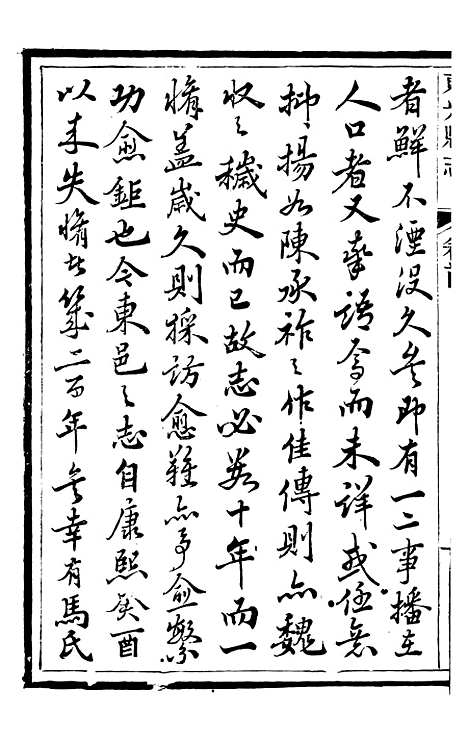 者鮮不湮没久矣即有一二事播在
人口者又率語焉而未詳或任意
抑揚如陳承祚之作佳傳則亦魏
收之穢史而已故志必數十年而一
脩葢歲久則採訪愈難亦事愈繁
功愈鉅也今東邑之志自康熙癸酉
以来失脩者幾二百年矣幸有馬氏